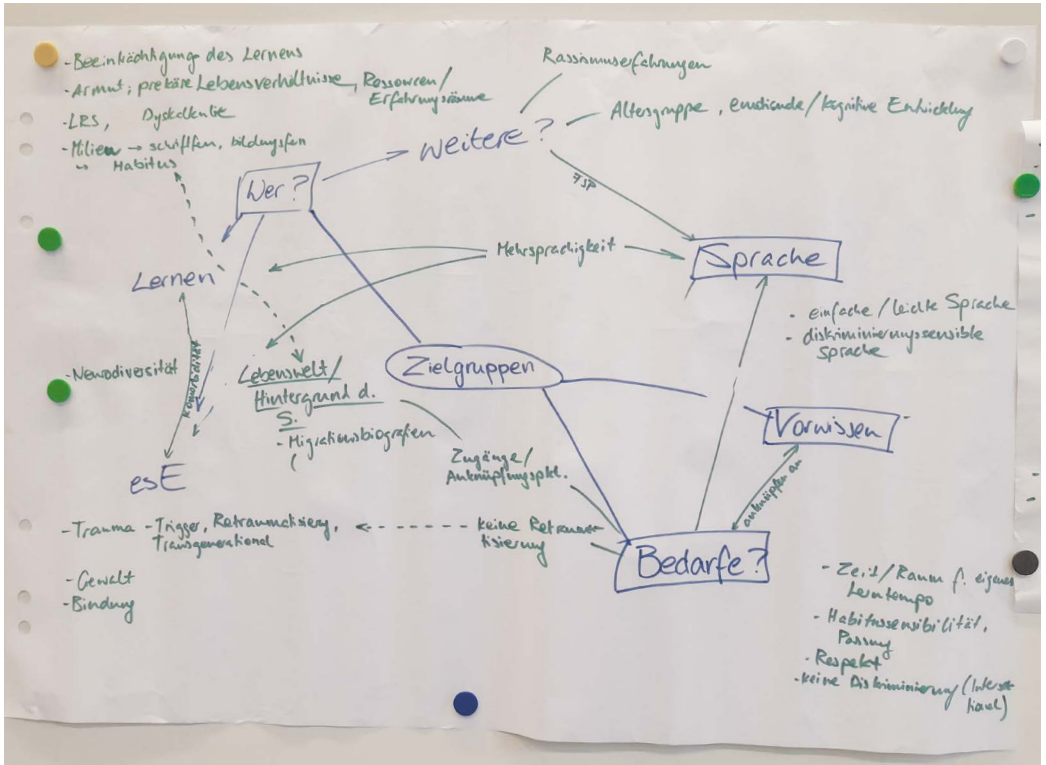 - Beeinträchtigung des Lernens
- Armut; prekäre Lebensverhältnisse, Ressourcen/
Erfahrungsräume
- LRS, Dyskalkulie
- Milieu → bildungsfern
↳ Habitus
Rassismuserfahrungen
Altersgruppe, emotionale/kognitive Entwicklung
weitere?
Wer?
FSP
Mehrsprachigkeit
Sprache
Lernen
- einfache/leichte Sprache
- diskriminierungssensible
Sprache
- Neurodiversität
Komorbidität
Lebenswelt/
Hintergrund d.
S.
- Migrationsbiografien
Zielgruppen
Vorwissen
Zugänge/
Anknüpfungspkt.
anknüpfen an
esE
- Trauma - Trigger, Retraumatisierung,
Transgenerational
keine Retrauma-
tisierung
Bedarfe?
- Gewalt
- Bindung
- Zeit/Raum f. eigenes
Lerntempo
- Habitussensibilität,
Passung
- Respekt
- keine Diskriminierung (Intersek
tional)